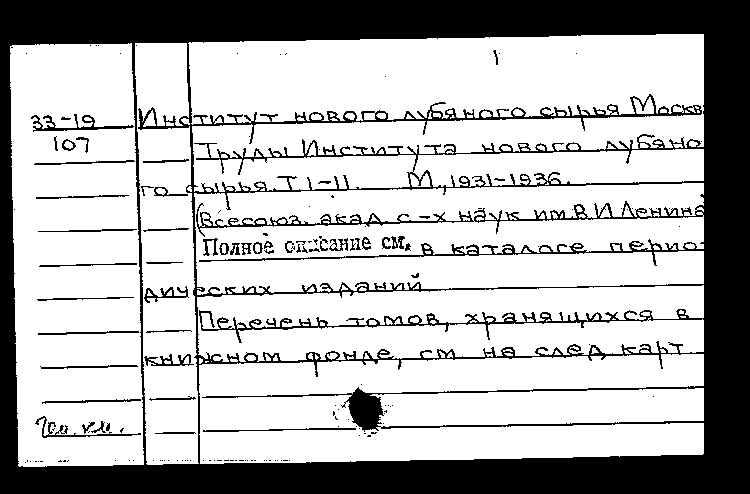 1
33-19 Институт нового лубяного сырья Москв
107 Труды Института нового лубяно
го сырья. Т 1-11. М., 1931-1936.
(Всесоюз. акад. с-х наук им. В. И Ленина
Полное описание см. в каталоге перио-
дических изданий
Перечень томов, хранящихся в
книжном фонде, см на след карт